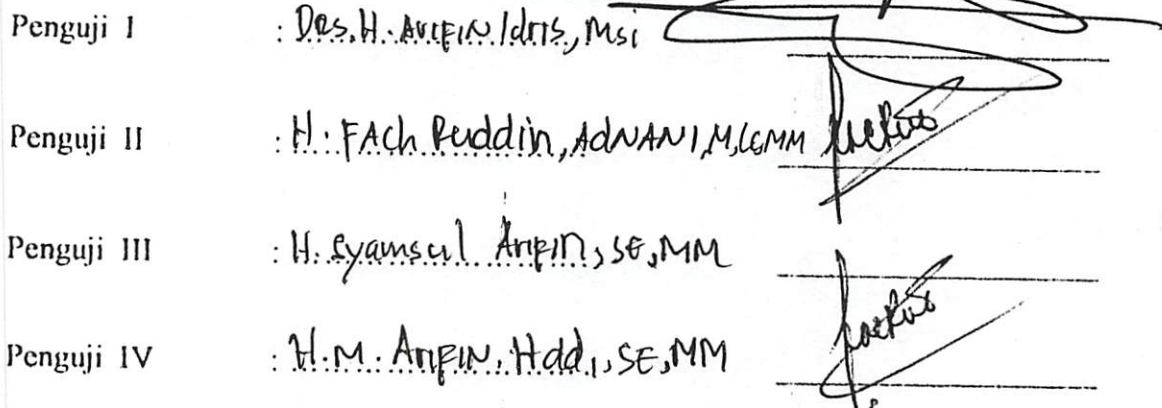 Penguji I : Drs. H. Arifin Idris, Msi
Penguji II : H. FAch Ruddin, AdNANI, M,
Penguji III : H. Syamsul Arifin, SE, MM
Penguji IV : H. M. Arifin, Hadi, SE, MM